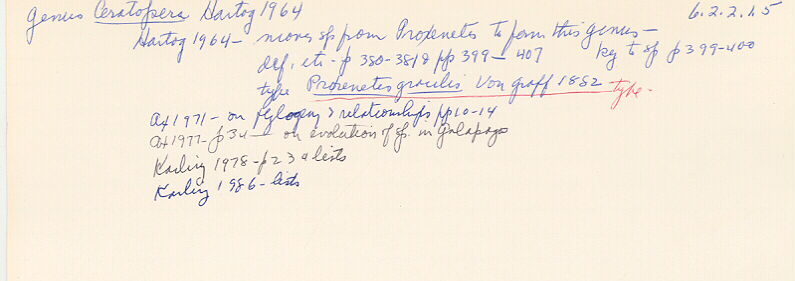 Genus Ceratopera Hartog 1964 6.2.2.1.5
Hartog 1964 - moves sp from Proxenetes to form this genus -
def, etc - p 380-381 & pp 399 - 407 key to sp p 399-400
type Proxenetes gracilis Von Graff 1882 - type -
Ax 1971 - on phylogeny & relationships pp 10-14
Ax 1977 - p 34 - on evolution of sp. in Galapagos
Karling 1978 - p 234 lists
Karling 1986 - lists